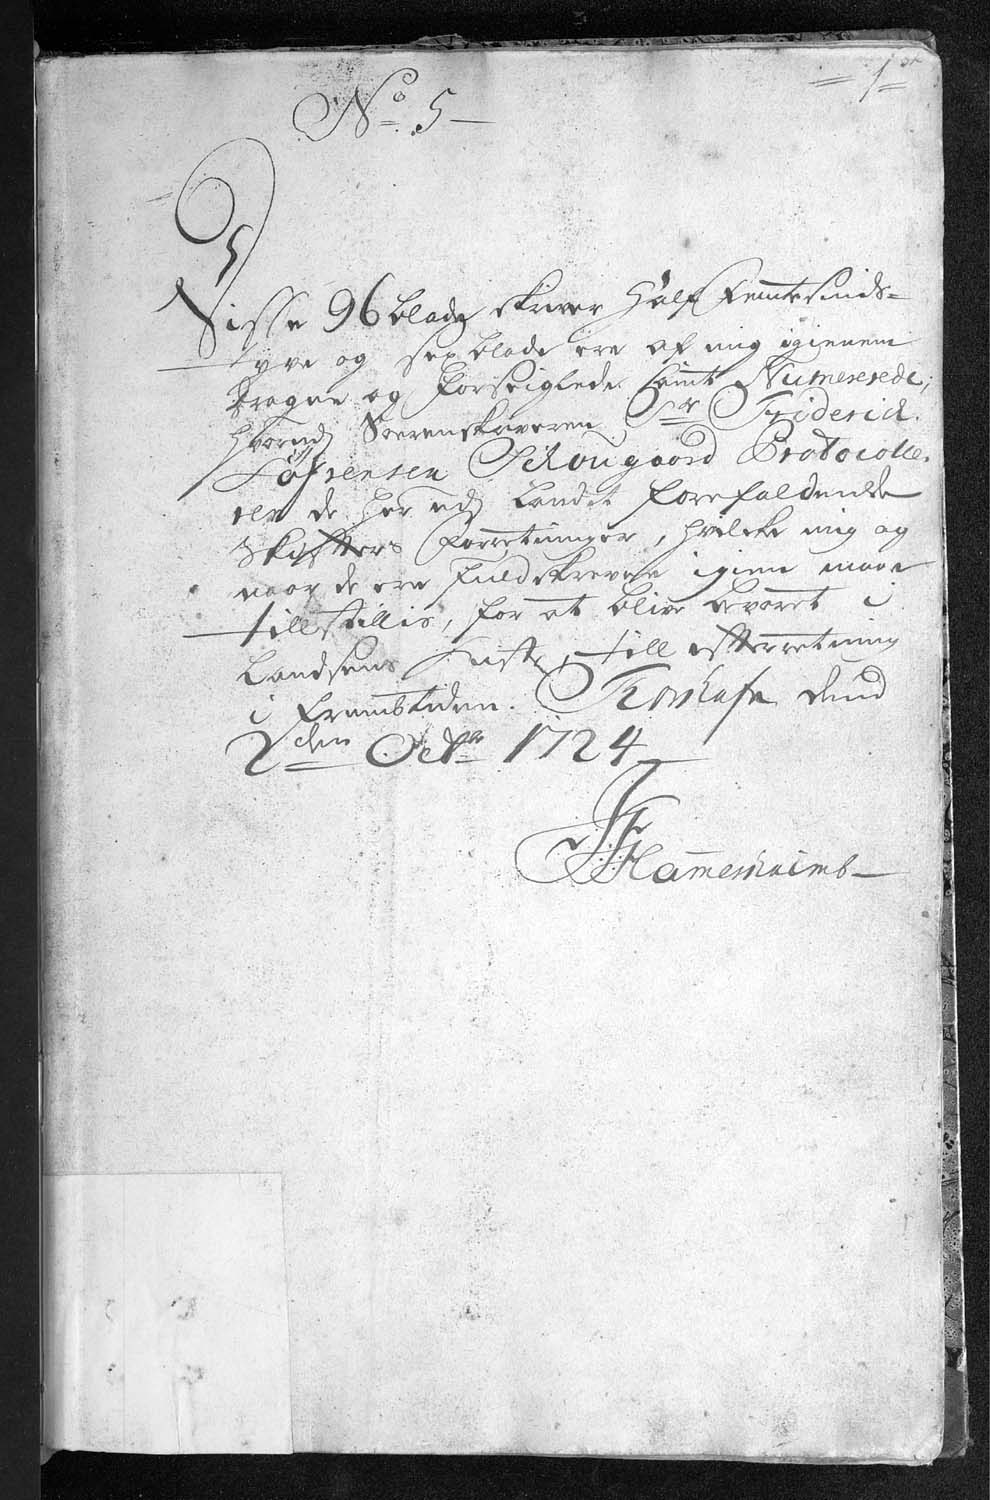 1
No. 5
Disse 96 blade skriver Half Femtesinds-
tyve og sex blade ere af mig igienem
dragne og forseiglede samt Numererede,
hvorudj Soerenskriveren Sr Friderich
Sørensen Schougaard Protocolle-
rer de her udj Landet forefaldende
Skiffters forretninger, hvilcke mig og
naar de ere fuldskrevene igien maae
tillstillis, for at blive bevaret i
Landsens Kiste, till effterretning
i frembtiden. dend
2den Octbr 1724
Hamershaimb